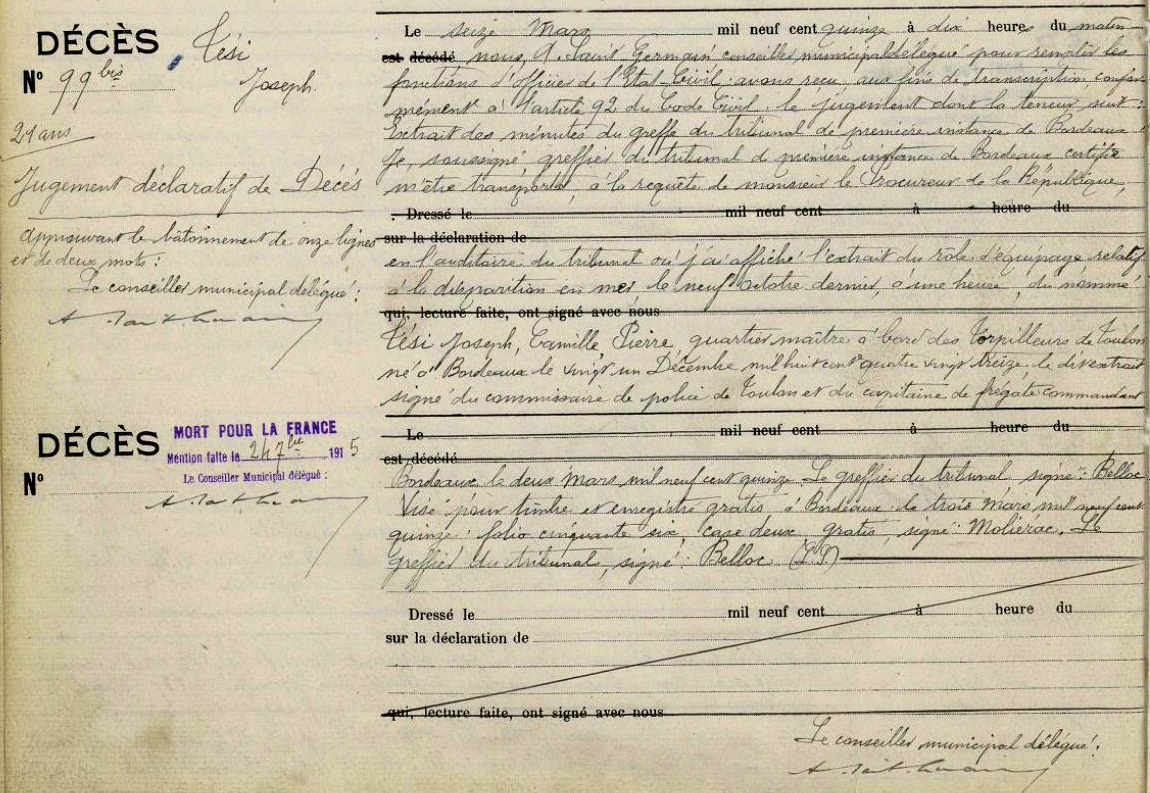 DÉCÈS
N° 99 bis
Tési
Joseph.
21 ans
Jugement déclaratif de Décés
Approuvant le bâtonnement de onze lignes
et de deux mots:
Le conseiller municipal délégué:
DÉCÈS
N°
MORT POUR LA FRANCE
Mention faite le 24 7bre 1915
Le Conseiller Municipal délégué :
Le seize Mars mil neuf cent quinze à dix heures du matin
est décédé nous, A. Saint Germain conseiller municipal délégué pour remplir les
fonctions d'officier de l'Etat-Civil avons reçu, aux fins de transcription, confor
mément à l'article 92 du Code Civil, le jugement dont la teneur suit:
Extrait des minutes du greffe du tribunal de première instance de Bordeaux
Je, soussigné greffier du tribunal de première instance de Bordeaux, certifie
m'être transporté, à la requête de monsieur le Procureur de la République,
Dressé le mil neuf cent à heure du
sur la déclaration de
en l'auditoire du tribunal où j'ai affiché l'extrait du rôle d'équipage relatif
à la disparition en mer le neuf octobre dernier, à une heure, du nommé
qui, lecture faite, ont signé avec nous
Tési Joseph, Camille, Pierre quartier maître à bord des Torpilleurs de Toulon
né à Bordeaux le vingt un Décembre mil huit cent quatre vingt treize, le dit extrait
signé du commissaire de police de Toulon et du capitaine de frégate commandant
Le mil neuf cent à heure du
est décédé
Bordeaux le deux Mars mil neuf cent quinze. Le greffier du tribunal signé: Belloc
Visé pour timbre et enregistré gratis à Bordeaux le trois Mars mil neuf cent
quinze: folio cinquante six, case deux, gratis, signé: Molierac. Le
greffier du tribunal, signé: Belloc
Dressé le mil neuf cent à heure du
sur la déclaration de
qui, lecture faite, ont signé avec nous
Le conseiller municipal délégué: